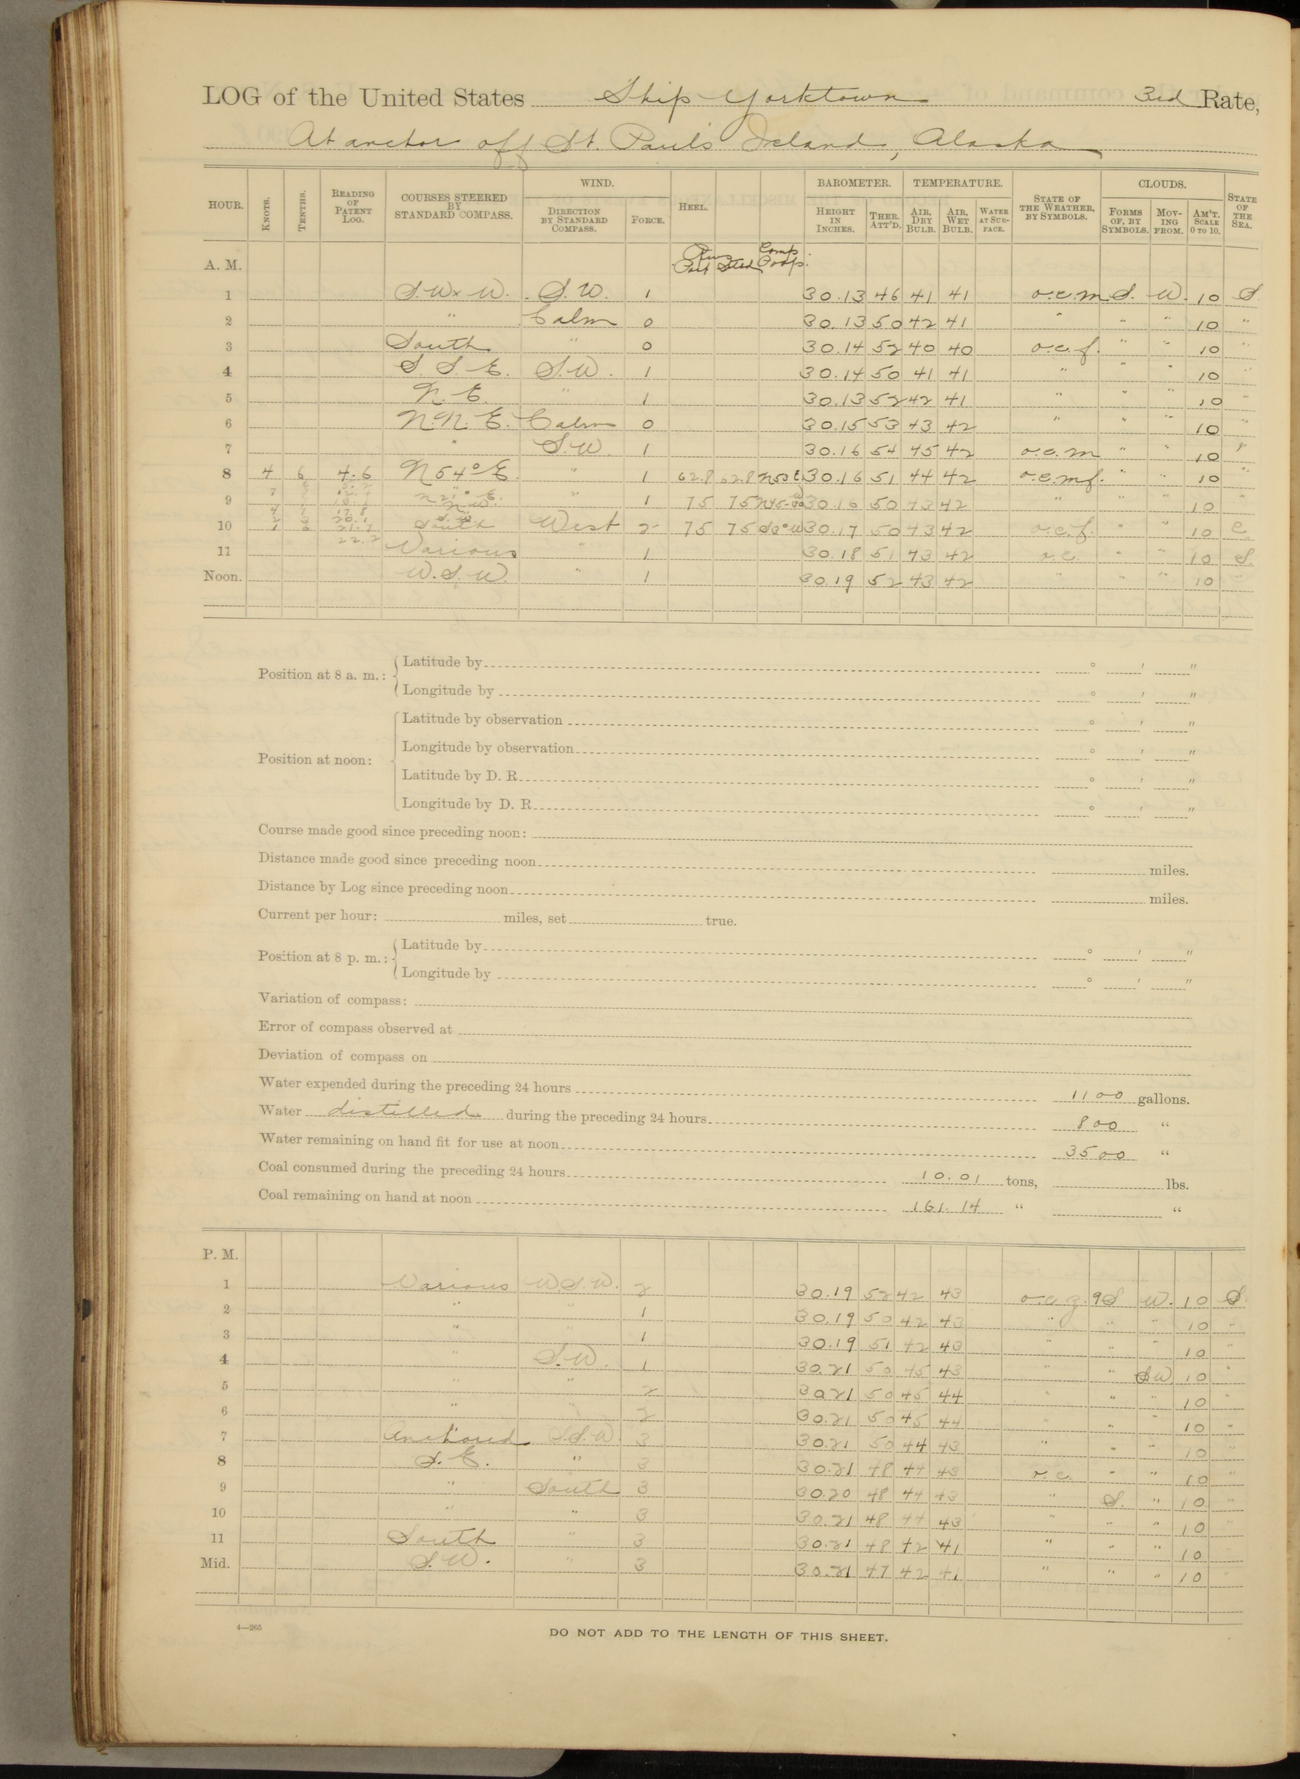 LOG of the United States Ship Yorktown 3rd Rate,
At anchor off St. Paul's Island, Alaska
HOUR. KNOTS. TENTHS. READING OF PATENT LOG. COURSES STEERED BY STANDARD COMPASS. WIND. DIRECTION BY STANDARD COMPASS. FORCE. HEEL. BAROMETER. HEIGHT IN INCHES. THER. ATT'D. TEMPERATURE. AIR, DRY BULB. AIR, WET BULB. WATER AT SURFACE. STATE OF THE WEATHER, BY SYMBOLS. CLOUDS. FORMS OF, BY SYMBOLS. MOVING FROM. AM'T. SCALE 0 TO 10. STATE OF THE SEA.
A. M. Port Stbd Comp.
1 S.W x W. S.W. 1 30.13 46 41 41 o.c.m S. W. 10 S
2 " Calm 0 30.13 50 42 41 " " " 10 "
3 South " 0 30.14 52 40 40 o.c.f. " " 10 "
4 S S E. S.W. 1 30.14 50 41 41 " " " 10 "
5 N. E. " 1 30.13 52 42 41 " " " 10 "
6 N.N.E. Calm 0 30.15 53 43 42 " " " 10
7 " S.W. 1 30.16 54 45 42 o.c.m " " 10 "
8 4 6 4.6 N 54° E " 1 62.8 62.8 30.16 51 44 42 o.c.m.f. " " 10 "
9 " 1 75 75 30.16 50 43 42 " " " 10 "
10 South West 2 75 75 30.17 50 43 42 o.c.f. " " 10
22.2
11 Various " 1 30.18 51 43 42 o.c. " " 10 S.
Noon. W.S.W. " 1 30.19 52 43 42 " " " 10 "
Position at 8 a. m.: Latitude by ° ′ ″
Longitude by ° ′ ″
Position at noon: Latitude by observation ° ′ ″
Longitude by observation ° ′ ″
Latitude by D. R. ° ′ ″
Longitude by D. R. ° ′ ″
Course made good since preceding noon:
Distance made good since preceding noon miles.
Distance by Log since preceding noon miles.
Current per hour: miles, set true.
Position at 8 p. m.: Latitude by ° ′ ″
Longitude by ° ′ ″
Variation of compass:
Error of compass observed at
Deviation of compass on
Water expended during the preceding 24 hours 1100 gallons.
Water distilled during the preceding 24 hours 800 “
Water remaining on hand fit for use at noon 3500 “
Coal consumed during the preceding 24 hours 10.01 tons, lbs.
Coal remaining on hand at noon 161.14 “ “
P. M.
1 Various W.S.W. 2 30.19 52 42 43 S W. 10 S
2 " " 1 30.19 50 42 43 " " " 10 "
3 " " 1 30.19 51 42 43 " " " 10 "
4 " S.W. 1 30.21 50 45 43 " " SW 10 "
5 " " 2 30.21 50 45 44 " " " 10 "
6 " " 2 30.21 50 45 44 " " " 10 "
7 Anchored S.S.W. 3 30.21 50 44 43 " " " 10 "
8 S. E. " 3 30.21 48 44 43 o.c. " " 10 "
9 " South 3 30.20 48 44 43 " S. " 10 "
10 " " 3 30.21 48 44 43 " " " 10 "
11 South " 3 30.21 48 42 41 " " " 10 "
Mid. S.W. " 3 30.21 47 42 41 " " " 10 "
4—265
DO NOT ADD TO THE LENGTH OF THIS SHEET.